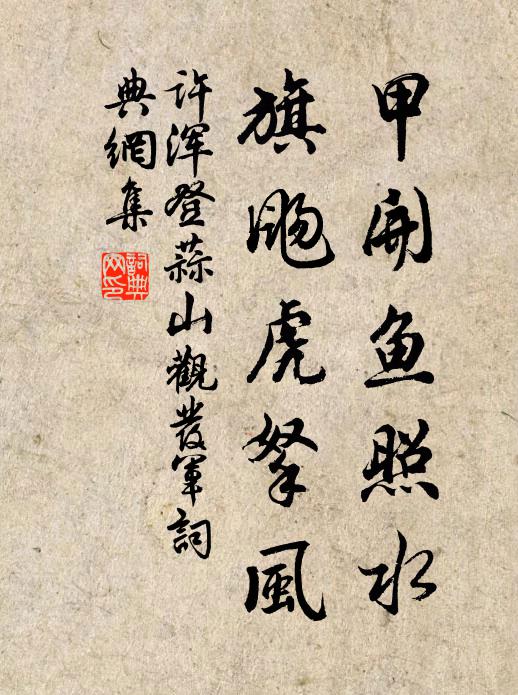 甲開魚照水
旗颺虎拏風
許渾登蒜山觀發軍詞
典網集
詞典
网印